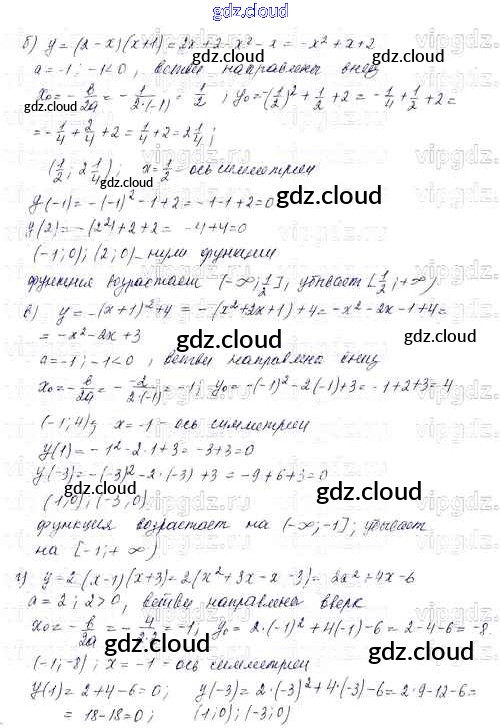 gdz.cloud
б) y = (2 - x)(x+1) = 2x+2-x²-x = -x²+x+2
a = -1; -1<0, ветви направлены вниз
x₀ = -b/2a = -1/(2·(-1)) = 1/2; y₀ = -(1/2)² + 1/2 + 2 = -1/4 + 1/2 + 2 =
= -1/4 + 2/4 + 2 = 1/4 + 2 = 2 1/4;
(1/2; 2 1/4); x = 1/2 - ось симметрии
gdz.cloud
y(-1) = -(-1)² - 1 + 2 = -1-1+2 = 0
y(2) = -(2²)+2+2 = -4+4=0
gdz.cloud
(-1;0); (2;0) - нули функции
функция возрастает (-∞; 1/2], убывает [1/2; +∞)
в) y = -(x+1)²+4 = -(x²+2x+1)+4 = -x²-2x-1+4 =
= -x²-2x+3
gdz.cloud
a = -1; -1<0, ветви направлены вниз
x₀ = -b/2a = - -2/(2·(-1)) = -1; y₀ = -(-1)² - 2(-1)+3 = -1+2+3 = 4
gdz.cloud
(-1; 4); x = -1 - ось симметрии
y(1) = -1² - 2·1+3 = -3+3=0
y(-3) = -(-3)² - 2·(-3) + 3 = -9+6+3=0
gdz.cloud
(1;0); (-3;0)
функция возрастает на (-∞; -1]; убывает
на [-1; +∞)
gdz.cloud
г) y = 2(x-1)(x+3) = 2(x²+3x-x-3) = 2x²+4x-6
a = 2; 2>0, ветви направлены вверх
x₀ = -b/2a = -4/(2·2) = -1; y₀ = 2·(-1)²+4(-1)-6 = 2-4-6 = -8
gdz.cloud
(-1; -8); x = -1 - ось симметрии
y(1) = 2+4-6 = 0; y(-3) = 2·(-3)²+4·(-3)-6 = 2·9-12-6 =
= 18-18=0; (1;0); (-3;0)
gdz.cloud